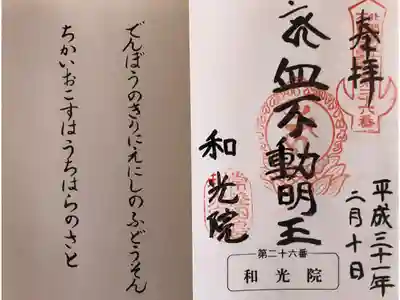 奉拝
血不動明王
和光院
平成三十一年
二月十日
第二十六番
和光院
でんぼうのきりにえにしのふどうそん
ちかいおこすはうちはらのさと